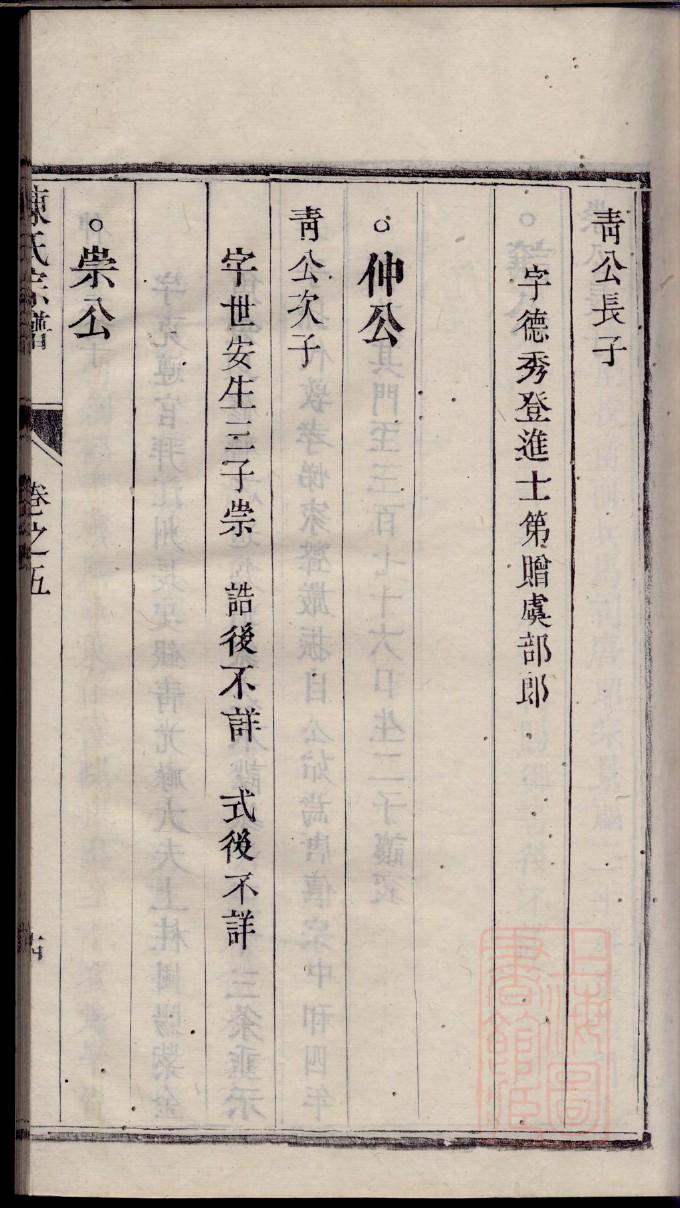 青公長子
字德秀登進士第贈虞部郎
○仲公
青公次子
字世安生三子崇　誥後不詳　式後不詳
○崇公
陳氏宗譜　卷之五
上海圖書館藏